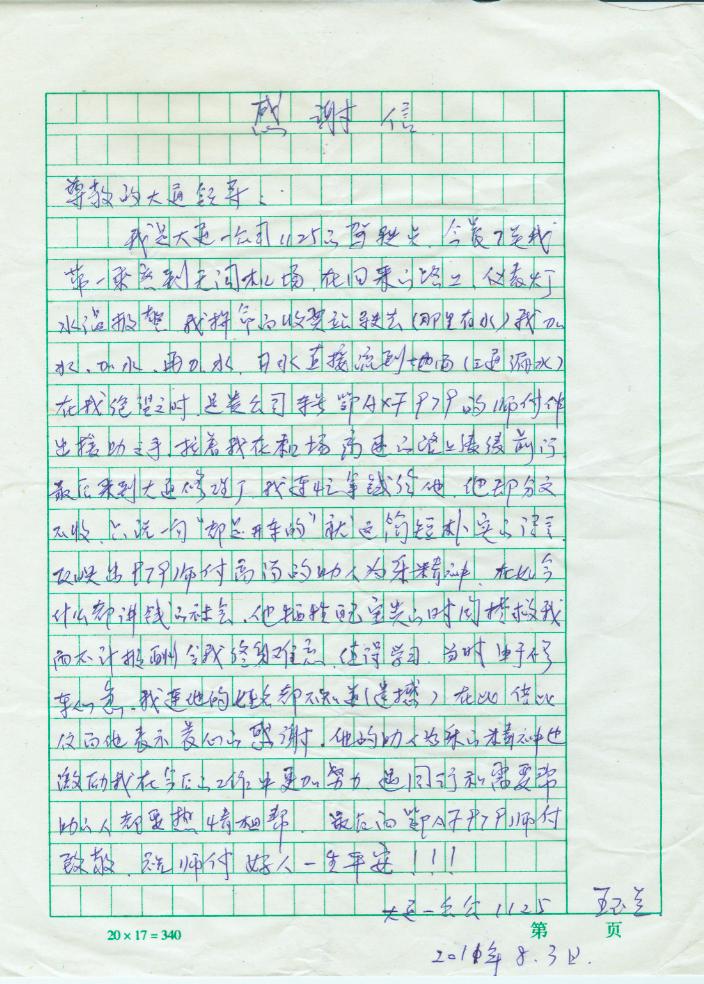 感谢信
尊敬的大通领导：
我是大通一公司1125的驾驶员，今晨7点我
第一乘客到天河机场，在回来的路上，仪表灯
水温报警，我拼命向收费站驶去（那里有水）我加
水、加水、再加水，自水直接流到地面（三通漏水）
在我绝望之时，是贵公司车号鄂AXF979的师付伸
出援助之手，拉着我在机场高速的路上缓缓前行
最后来到大通修理厂，我连忙拿钱给他，他却分文
不收，只说一句"都是开车的"就这简短朴实的语言
反映出979师付高尚的助人为乐精神，在此今
什么都讲钱的社会，他牺牲宝贵的时间拯救我
而不计报酬令我终身难忘，值得学习，当时由于修
车心急，我连他的姓名都不知道（遗憾）在此借此
信向他表示衷心的感谢，他的助人为乐的精神也
激励我在今后的工作中更加努力，遇同行和需要帮
助的人都要热情相帮，最后向鄂AF979师付
致敬，祝师付好人一生平安！！！
大通一公公1125 王玉兰
20×17=340 第 页
2011年8.3日.